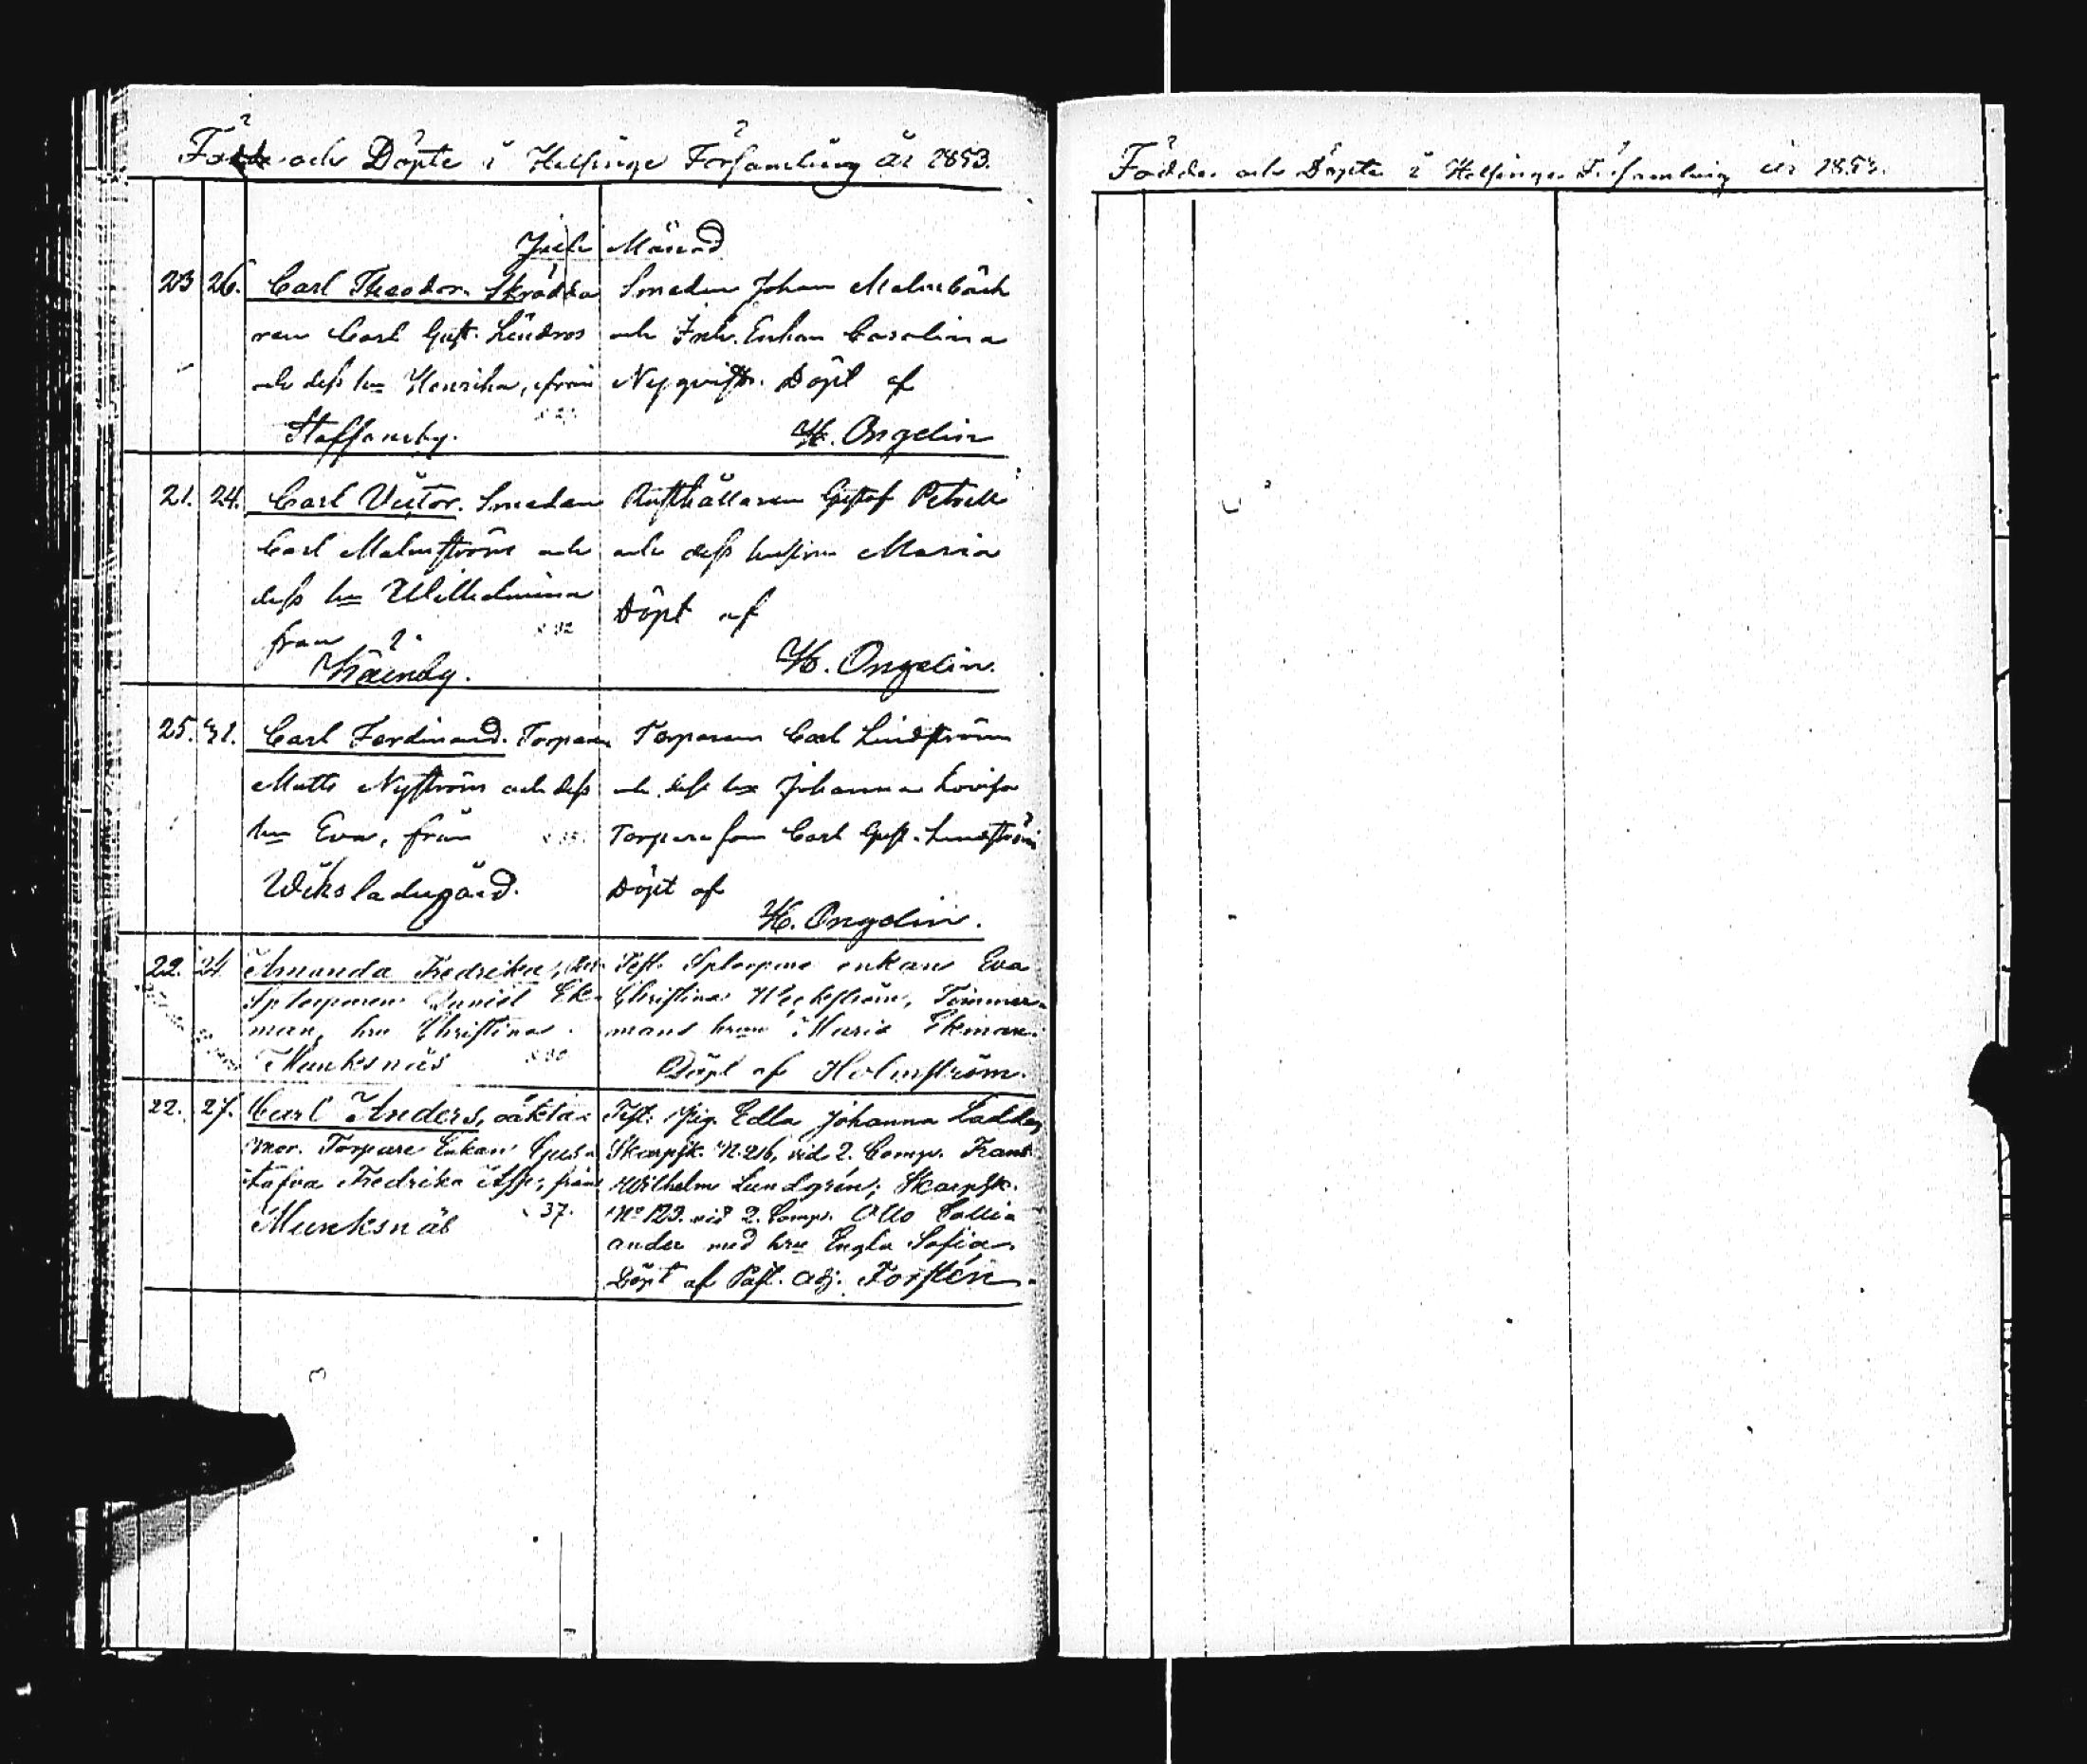 Födde och Döpte i Helsinge Församling år 1853.
Juli Månad
23 26. Carl Theodor. Skrädda Smeden Johan Malmbäck
ren Carl Gust. Lindroos och Enkan Carolina
och dess hu Henrika, från Nyqvist. Döpt af
Staffansby. H. Ongelin
21. 24. Carl Victor. Smeden Rusthållaren Gustaf Petrell
Carl Malmström och och dess hustru Maria
dess hu Wilhelmina Döpt af
från
H. Ongelin.
25. 31. Carl Ferdinand. Torparen Torparen Carl Lindström
Matts Nyström och dess och dess hu Johanna Lovisa
hu Eva, från Torpare son Carl Gust. Lindström
Wiks ladugård. Döpt af
H. Ongelin.
22. 24. Amanda Fredrika, Test. enkan Eva
Daniel Ek- Christina Weckström, Timmer-
man, hu Christina mans hru Maria Ekman.
Munksnäs Döpt af Holmström.
22. 27. Carl Anders, oäkta Test. Pig. Edla Johanna
mor. Torpare Enkan Gus- Skarpsk. N. 216, vid 2. Comp. Frans
tafva Fredrika från Wilhelm Lundgrén, Skarpsk.
Munksnäs 37. No 123. vid 2. Comp. Otto
ander med hru Engla Sofia.
Döpt af Past. Adj. Forstén.
Födde och Döpte i Helsinge Församling år 1853.